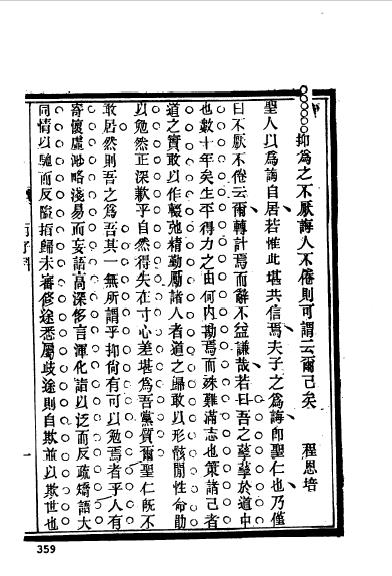 抑為之不厭誨人不倦則可謂云爾已矣 程恩培
聖人以為誨自居若惟此堪共信焉夫子之為誨即聖仁也乃僅
曰不厭不倦云爾轉計焉而辭不益謙哉若曰吾之孳孳於道中
也數十年矣生平得力之由何內勘焉而殊難滿志也策諸己者
道之實敢以作輟弛精勤勵諸人者道之歸敢以形骸閒性命助
以勉然正深歉乎自然得失在寸心差堪為吾黨質爾聖仁既不
敢居然則吾之為吾其一無所謂乎抑尚有可以勉焉者乎人有
寄懷虛渺略淺易而妄語高深侈言渾化語以迂而反疏矯語大
同情以馳而反隘指歸未審修途悉屬歧途則自欺並以欺世也
359